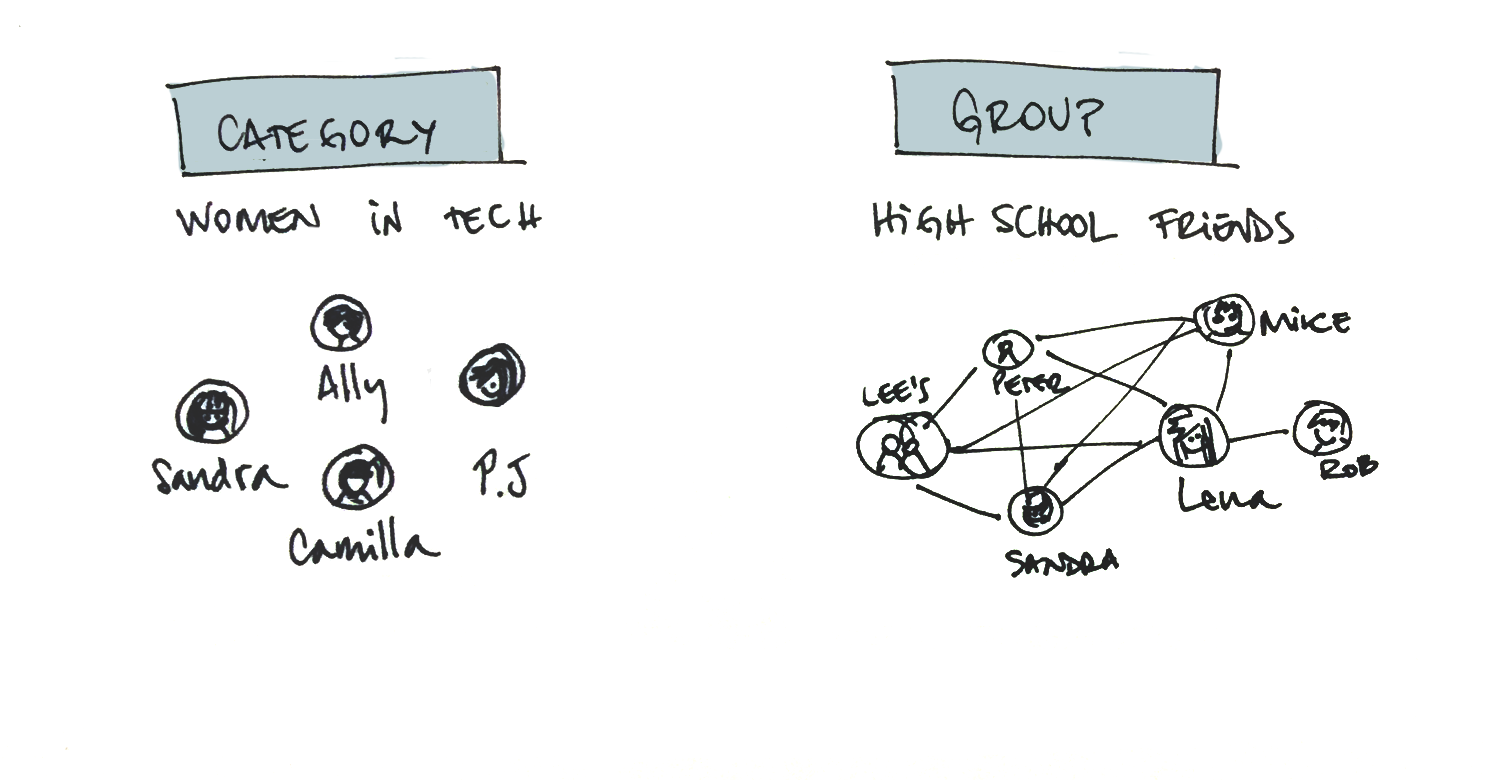 CATEGORY
WOMEN iN TECH
Ally
Sandra
P.J
Camilla
GROUP
HiGH SCHOOL FRiENDS
MiKE
PETER
LEE'S
ROB
Lena
SANDRA